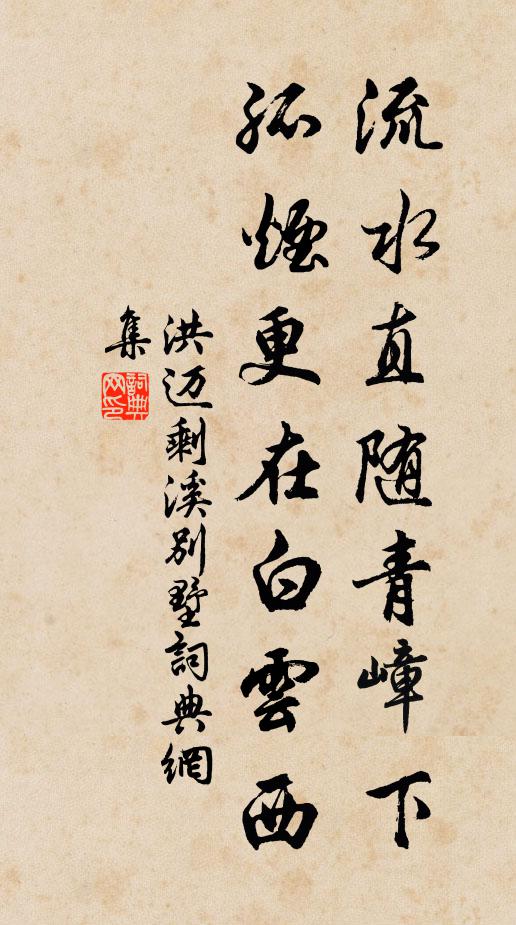 流水直随青嶂下
孤煙更在白雲西
洪迈剩溪别墅詞典網
集
詞典网印